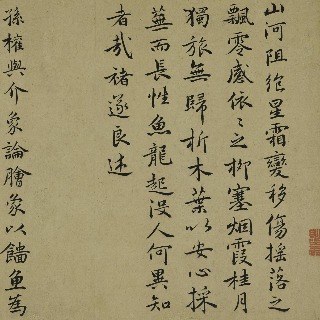 山河阻絶星霜變移傷搖落之
飄零感依依之柳塞烟霞桂月
獨旅無歸折木葉以安心採
蕪而長性魚龍起没人何異知
者哉褚遂良述
孫權與介象論膾象以鯔魚為